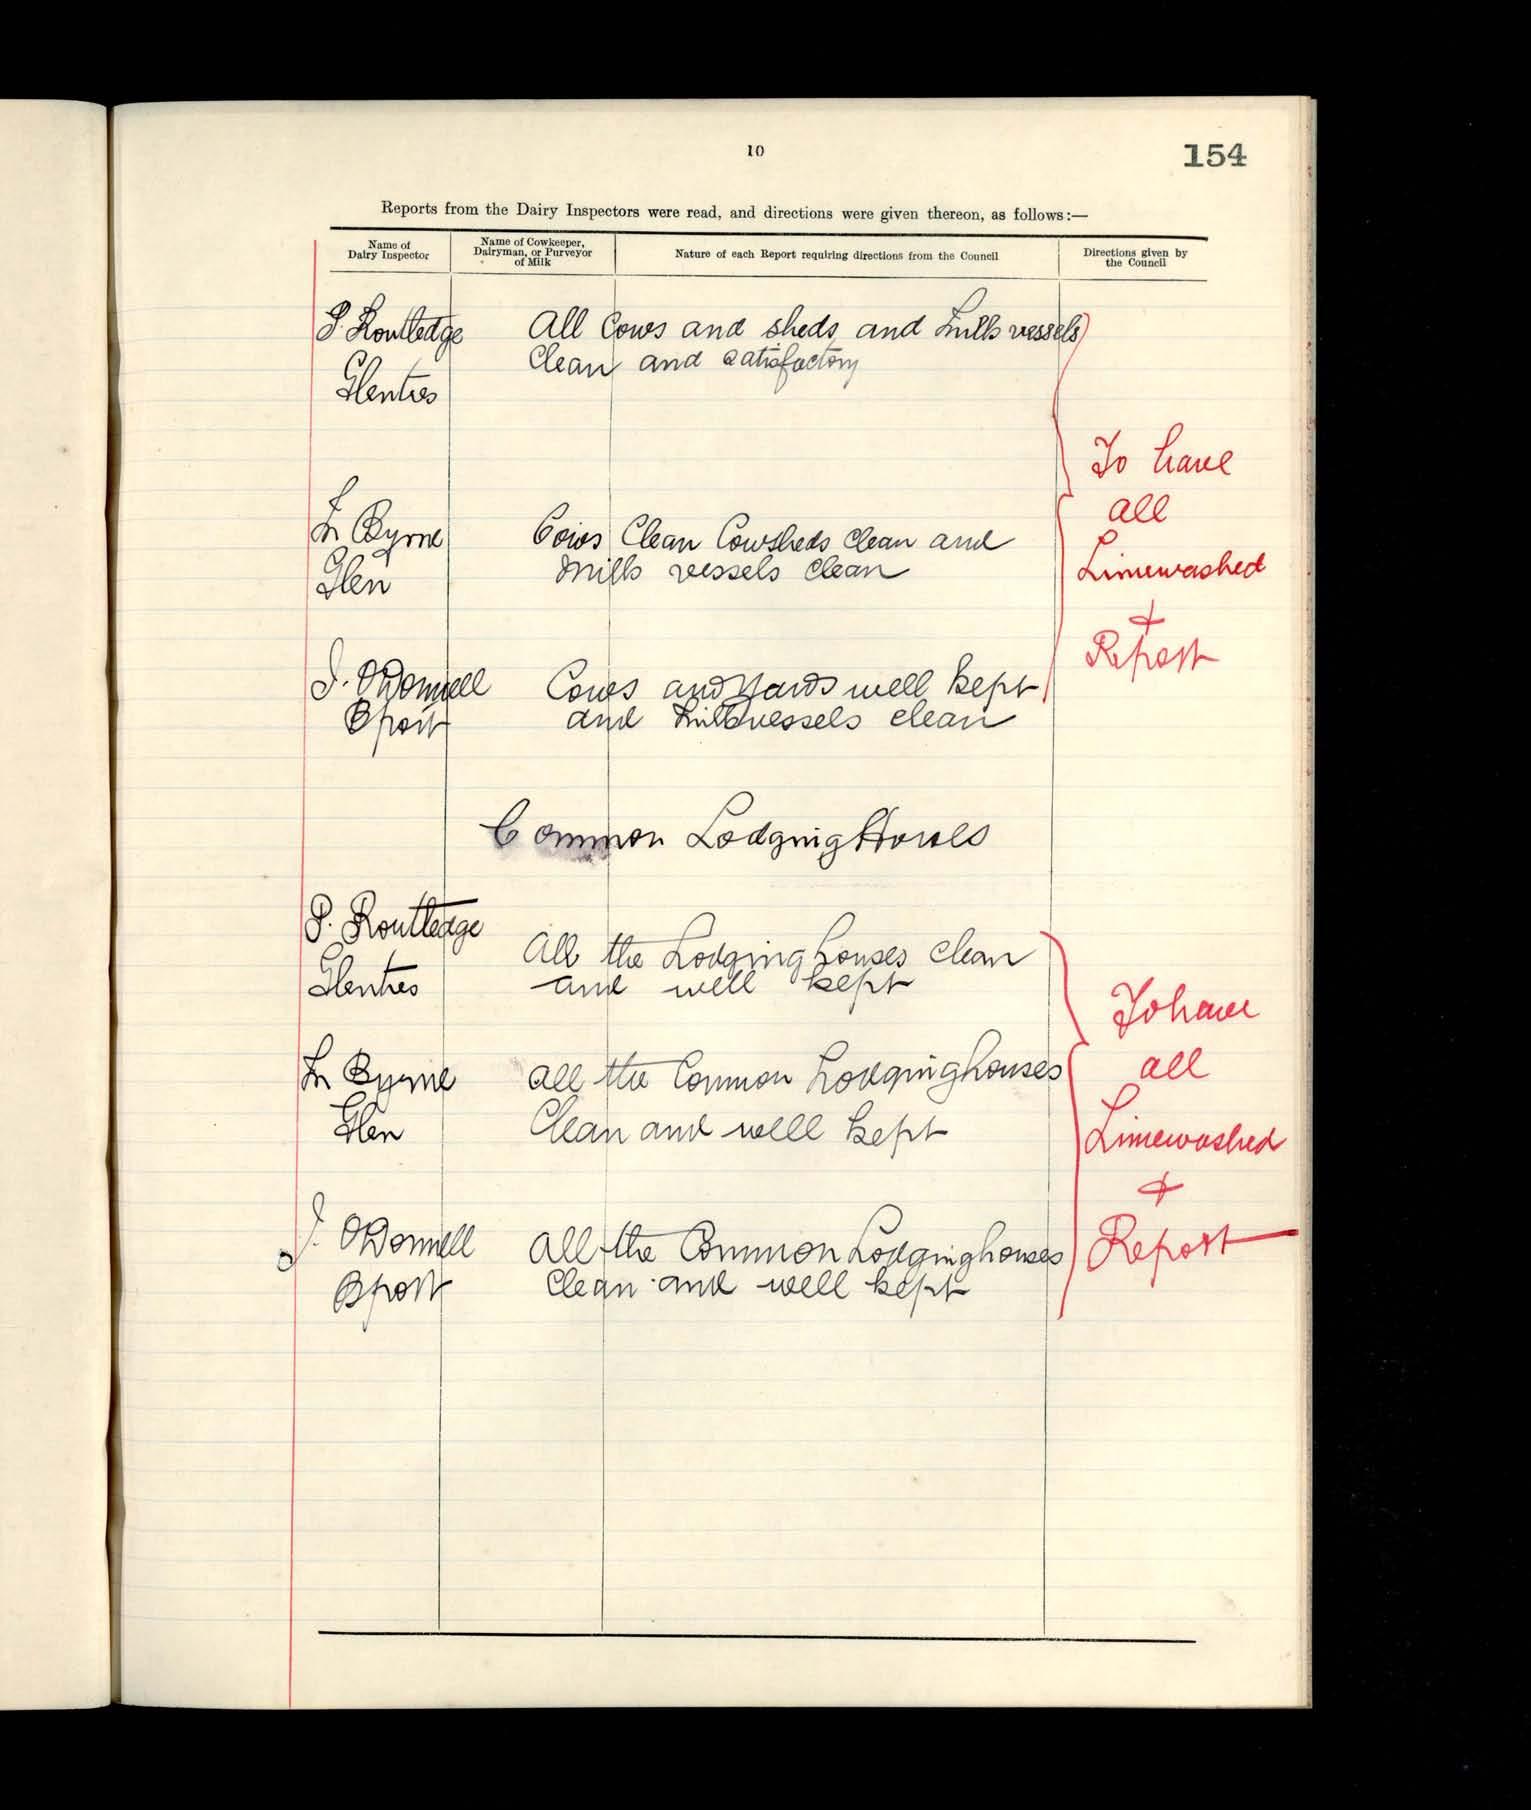 10
154
Reports from the Dairy Inspectors were read, and directions were given thereon, as follows:—
Name of Dairy Inspector
Name of Cowkeeper, Dairyman, or Purveyor of Milk
Nature of each Report requiring directions from the Council
Directions given by the Council
P. Routledge
Glenties
All Cows and sheds and milk vessels
Clean and satisfactory
Byrne
Glen
Cows Clean Cowsheds clean and
milk vessels clean
J. O'Donnell
Bport
Cows and yards well kept
and milkvessels clean
To have
all
Limewashed
&
Report
Common Lodging Houses
P. Routledge
Glenties
All the Lodging houses clean
and well kept
Byrne
Glen
all the Common Lodginghouses
Clean and well kept
J. O'Donnell
Bport
All the Common Lodginghouses
Clean and well kept
To have
all
Limewashed
&
Report